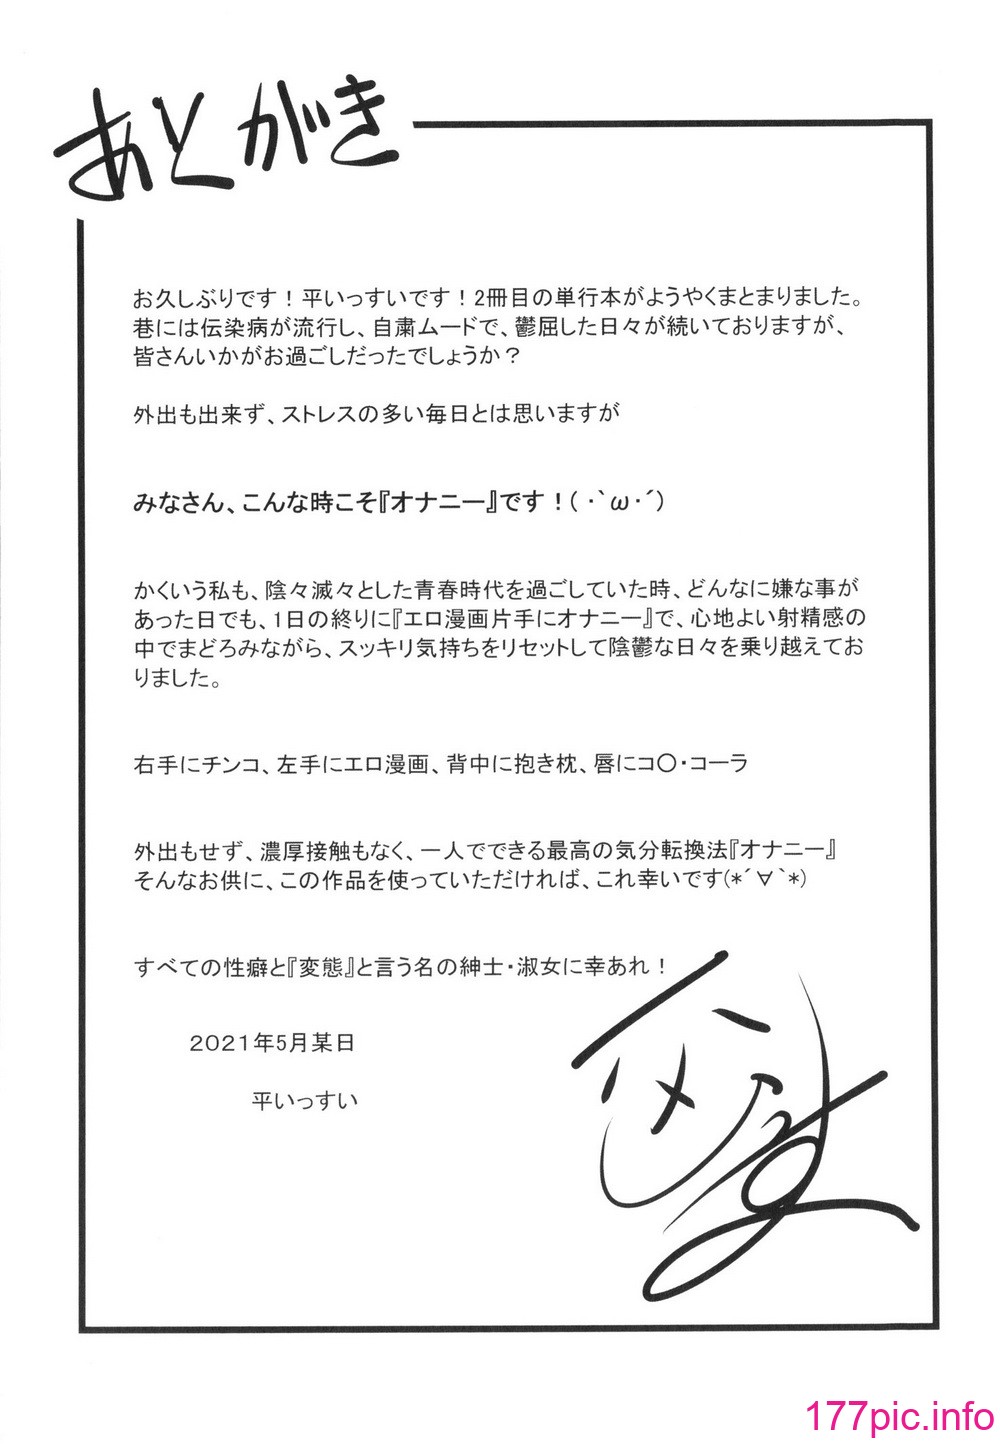 あとがき
お久しぶりです！平いっすいです！2冊目の単行本がようやくまとまりました。
巷には伝染病が流行し、自粛ムードで、鬱屈した日々が続いておりますが、
皆さんいかがお過ごしだったでしょうか？
外出も出来ず、ストレスの多い毎日とは思いますが
みなさん、こんな時こそ『オナニー』です！(｀・ω・´)
かくいう私も、陰々滅々とした青春時代を過ごしていた時、どんなに嫌な事が
あった日でも、1日の終りに『エロ漫画片手にオナニー』で、心地よい射精感の
中でまどろみながら、スッキリ気持ちをリセットして陰鬱な日々を乗り越えてお
りました。
右手にチンコ、左手にエロ漫画、背中に抱き枕、唇にコ〇・コーラ
外出もせず、濃厚接触もなく、一人でできる最高の気分転換法『オナニー』
そんなお供に、この作品を使っていただければ、これ幸いです(*´∀｀*)
すべての性癖と『変態』と言う名の紳士・淑女に幸あれ！
2021年5月某日
平いっすい
177pic.info